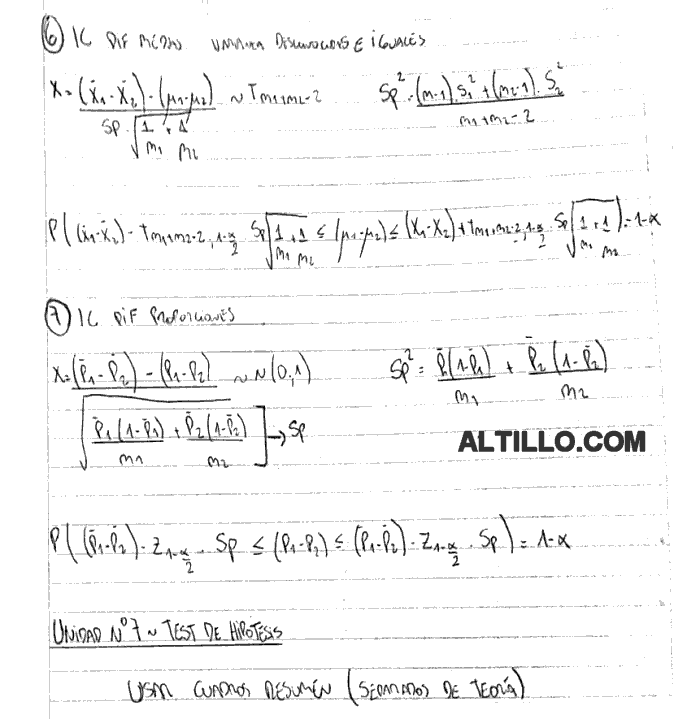 ⑥ IC DIF MEDIAS VARIANZA DESCONOCIDAS E IGUALES
X = ((X̄1 - X̄2) - (μ1 - μ2)) / (Sp · √(1/m1 + 1/m2)) ~ T m1+m2-2     Sp² = ((m-1) · S1² + (m2-1) · S2²) / (m1+m2-2)
P((x̄1 - x̄2) - t m1+m2-2, 1-α/2 · Sp √(1/m1 + 1/m2) ≤ (μ1 - μ2) ≤ (X1 - X2) + t m1+m2-2, 1-α/2 · Sp √(1/m1 + 1/m2)) = 1-α
⑦ IC DIF PROPORCIONES
X = ((P̄1 - P̄2) - (P1 - P2)) / √(P̄1(1-P̄1)/m1 + P̄2(1-P̄2)/m2) → Sp ~ N(0,1)     Sp² = P̄1(1-P̄1)/m1 + P̄2(1-P̄2)/m2
ALTILLO.COM
P((P̄1 - P̄2) - Z1-α/2 · Sp ≤ (P1 - P2) ≤ (P̄1 - P̄2) - Z1-α/2 · Sp) = 1-α
UNIDAD Nº7 ~ TEST DE HIPÓTESIS
USAR CUADROS RESUMEN (SEPARADOS DE TEORÍA)